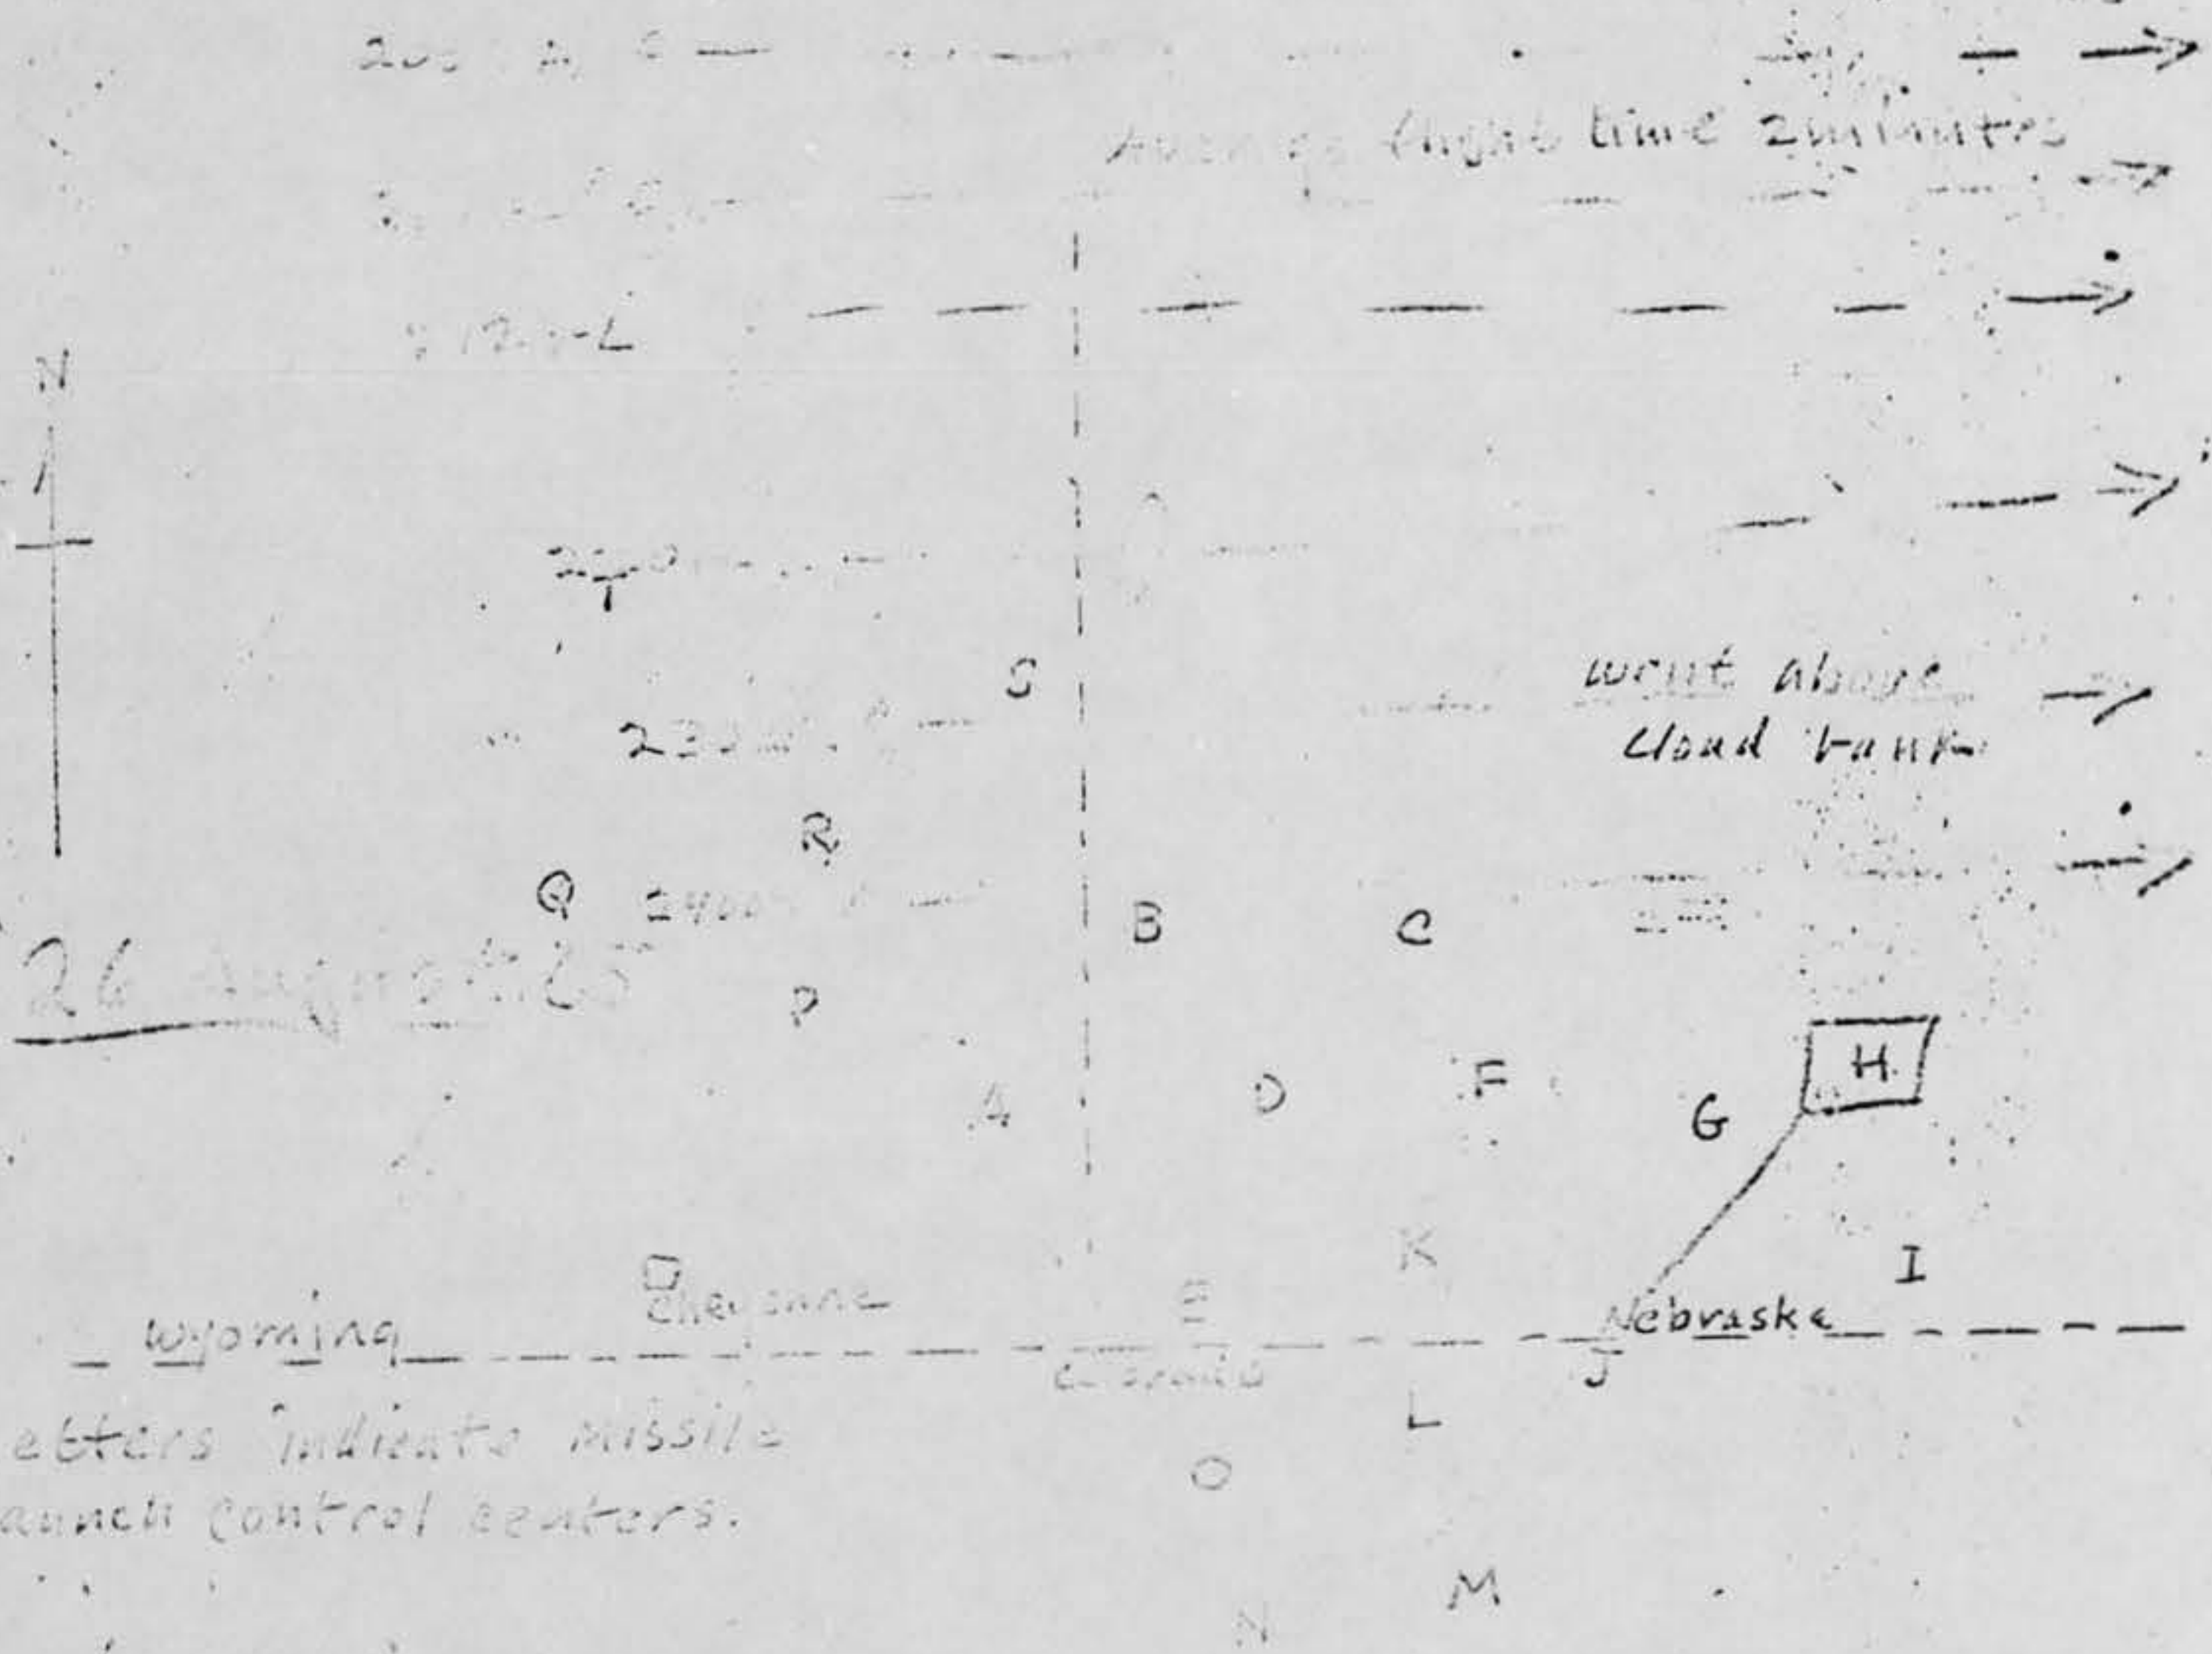 flight time 2 minutes
N
S
went above
cloud bank
R
Q
2400
B
C
26 August 65
P
H
A
D
F
G
K
I
Cheyenne
E
Wyoming
Nebraska
Colorado
J
etters indicate missile
L
O
aunch control centers.
M
N